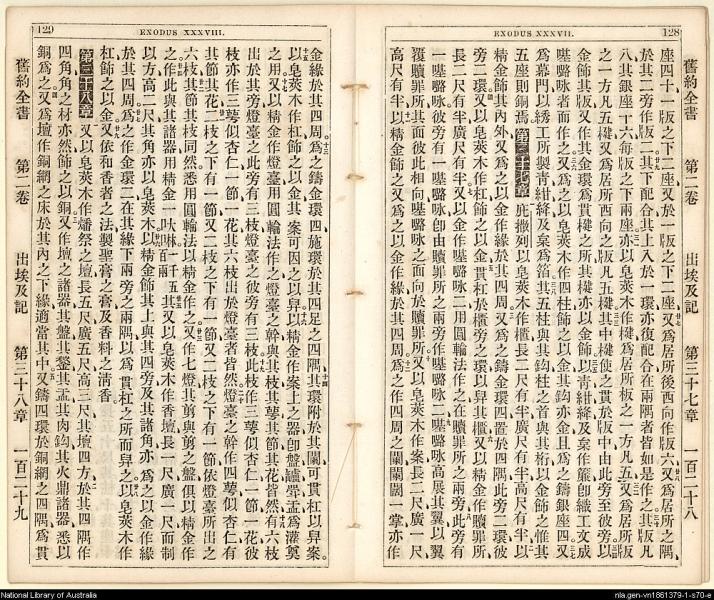 EXODUS XXXVII. 128
舊約全書 第二卷 出埃及記 第三十七章 一百二十八
座四十一版之下二座又於一版之下二座又爲居所後西向作版六又爲居所之隅
於其二旁作版二其下配合其上入於一環亦復配合在兩隅者皆如是作之其版凡
八其銀座十六每版之下兩座亦以皂莢木作楗爲居所板之一方凡五又爲居所版
之一方凡五楗又爲居所西向之版凡五楗其中楗使之貫於版中由此旁至彼旁以
金飾其版又作其金環爲貫楗之所其楗亦以金飾以青紺絳及枲作簾卽織工文成
𠼻𡀔咏者而作之又爲之以皂莢木作四柱飾之以金其鈎亦金且爲之鑄銀座四又
爲幕門以綉工所製青紺絳及枲爲箔其五柱與其鈎柱之首與其桁以金飾之惟其
五座則銅焉第三十七章庇撒列以皂莢木作櫃長二尺有半廣尺有半高尺有半以
精金飾其內外又爲之以金作緣於其四周又爲之鑄金環四置於四隅此旁二環彼
旁二環又以皂莢木作杠飾之以金貫杠於櫃旁之環以舁其櫃又以精金作贖罪所
長二尺有半廣尺有半又以金作𠼻𡀔咏二用圓輪法作之在贖罪所之兩旁此旁有
一𠼻𡀔咏彼旁有一𠼻𡀔咏卽由贖罪所之兩旁作𠼻𡀔咏二𠼻𡀔咏高展其翼以翼
覆贖罪所其面彼此相向𠼻𡀔咏之面向於贖罪所又以皂莢木作案長二尺廣一尺
高尺有半以精金飾之又爲之以金作緣於其四周爲之作四周之闌闌闊一掌亦作
129 EXODUS XXXVIII.
金緣於其四周爲之鑄金環四施環於其四足之四隅其環附於其闌可貫杠以舁案
以皂莢木作杠飾之以金其案可因之以舁以精金作案上之器卽盤罏斝盂爲灌奠
之用又以精金作燈臺用圓輪法作之燈臺之幹與其枝其萼其節其花皆然有六枝
出於其旁燈臺之此旁有三枝燈臺之彼旁有三枝此枝作三萼似杏仁一節一花彼
枝亦作三萼似杏仁一節一花其六枝出於燈臺者皆然燈臺之幹作四萼似杏仁有
其節其花二枝之下有一節又二枝之下有一節又二枝之下有一節依燈臺所出之
六枝其節其枝同然悉用圓輪法以精金作之又作七燈其剪與剪之盤俱以精金作
之作此與其諸器用精金一千五百兩其又以皂莢木作香壇長一尺廣一尺而制
以方高二尺其角亦以皂莢木以精金飾其上與其四旁及其諸角亦爲之以金作緣
於其四周爲之作金環二在其緣下兩旁之兩隅以爲貫杠之所而舁之以皂莢木作
杠飾之以金又依和香者之法製聖膏之膏及香料之淸香
第三十八章又以皂莢木作燔祭之壇長五尺廣五尺高三尺其壇四方於其四隅作
四角角之材亦然飾之以銅又作壇之諸器其盤其鏊其盂其肉鈎其火鼎諸器悉以
銅爲之又爲壇作銅網之床於其內之下緣適當其中又鑄四環於銅網之四隅爲貫
舊約全書 第二卷 出埃及記 第三十八章 一百二十九
National Library of Australia
nla.gen-vn1861379-1-s70-e